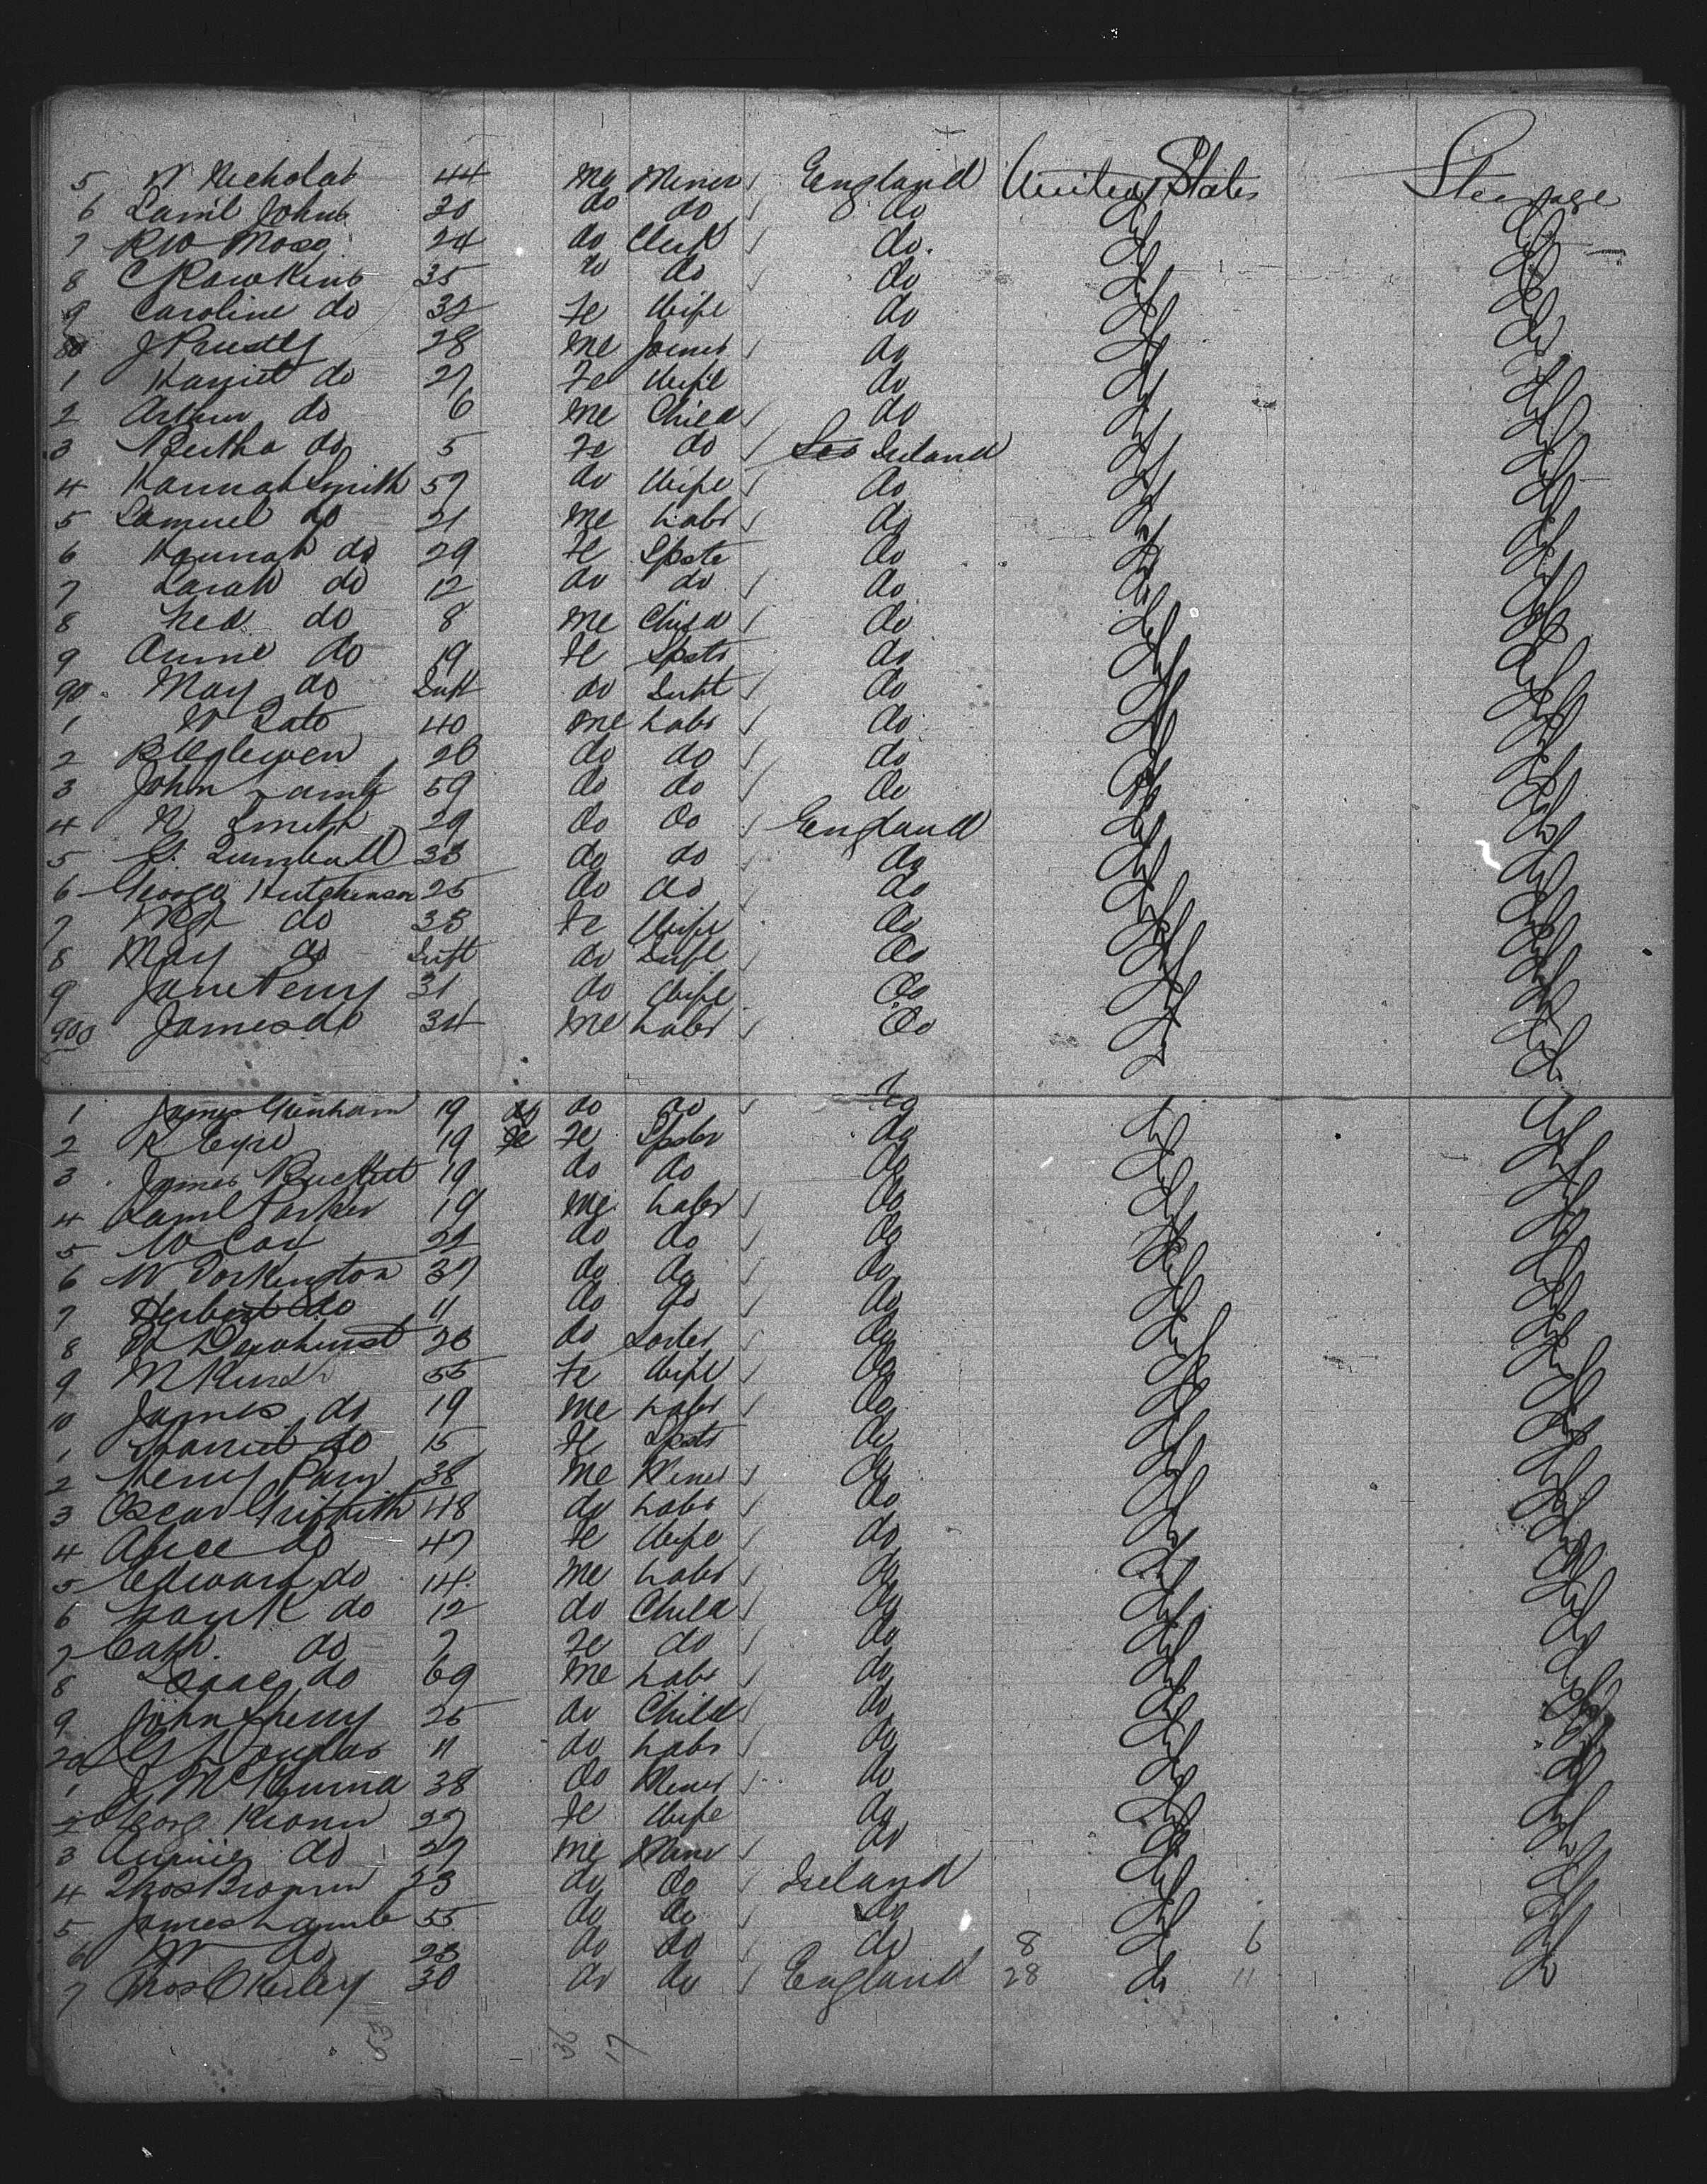 5 W Nicholas 44 Me Miner England United States Steerage
6 Saml Johns 30 do do do do do
7 RW Moss 24 do Clerk do do do
8 C Rawkins 35 do do do do do
9 Caroline do 32 Fe Wife do do do
80 J Priestly 28 Me Joiner do do do
1 Harriet do 27 Fe Wife do do do
2 Arthur do 6 Me Child do do do
3 Bertha do 5 Fe do Ireland do do
4 Hannah Smith 57 do Wife do do do
5 Samuel do 21 Me Labr do do do
6 Hannah do 29 Fe Spstr do do do
7 Sarah do 12 do do do do do
8 Fred do 8 Me Child do do do
9 Annie do 19 Fe Spstr do do do
90 May do Inft do Inft do do do
1 W 40 Me Labr do do do
2 26 do do do do do
3 John Lamb 59 do do do do do
4 Smith 29 do do England do do
5 33 do do do do do
6 George Hutchinson 25 do do do do do
7 Mgt do 33 Fe Wife do do do
8 May do Inft do Inft do do do
9 Jane Perry 31 do Wife do do do
900 James do 34 Me Labr do do do
1 James Grenham 19 do do do do do
2 R Eyre 19 Fe Fe Spstr do do do
3 James 19 do do do do do
4 Saml Parker 19 Me Labr do do do
5 W Coy 22 do do do do do
6 W Torkington 37 do do do do do
7 Herbert do 11 do do do do do
8 Dewhurst 26 do do do do
9 M 55 Fe Wife do do do
10 James do 19 Me Labr do do do
1 Harriet do 15 Fe Spstr do do do
2 Henry Parry 38 Me Miner do do do
3 Oscar Griffith 48 do Labr do do do
4 Alice do 47 Fe Wife do do do
5 Edward do 14 Me Labr do do do
6 Frank do 12 do Child do do do
7 Cath. do 7 Fe do do do do
8 Isaac do 69 Me Labr do do do
9 John Sherry 25 do Child do do do
20 G Douglas 11 do Labr do do do
1 J McKenna 38 do Miner do do do
2 Georg 27 Fe Wife do do do
3 Annie do 27 Me Miner do do do
4 Thos Brown 23 do do Ireland do do
5 James Lamb 55 do do do do do
6 W do 23 do do do 8 do 6 do
7 Thos 30 do do England 28 do 11 do
53 36 17